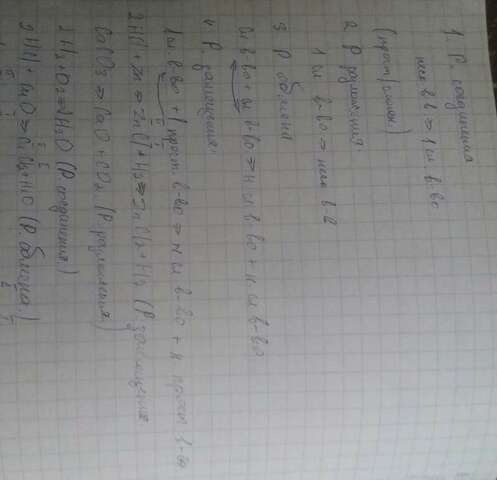 1 Р. соединения
неск в-в => 1 сл. в-во
(прост/сложн.)
2 Р разложения:
1 сл в-во => неск в-в
3 Р обмена
сл в-во + сл в-во => н сл в-во + н сл в-во
4 Р. замещения:
1 сл. в-во + 1 прост. в-во => н сл в-во + н прост в-во
2HCl + Zn => ZnCl + H2 => ZnCl2 + H2 (Р. замещения)
CaCO3 => CaO + CO2 (Р. разложения)
2H2 + O2 => 2H2O (Р. соединения.)
2HCl + CuO => CuCl2 + H2O (Р. обмена.)